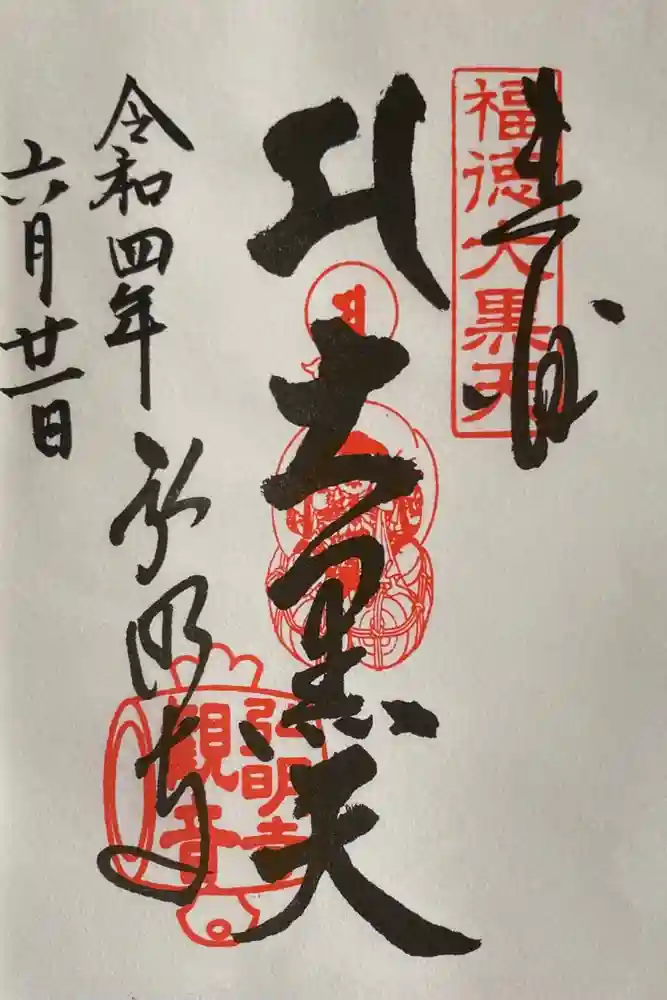 奉拝
福徳大黒天
大黒天
弘明寺
弘明寺
観音
令和四年
六月廿一日